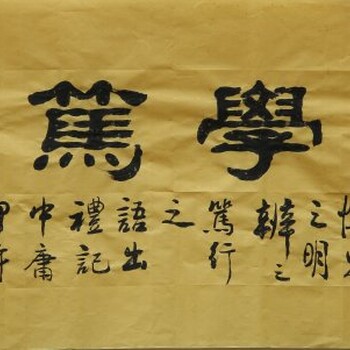 學篤
之明
辨之
篤行
之
語出
禮記
中庸